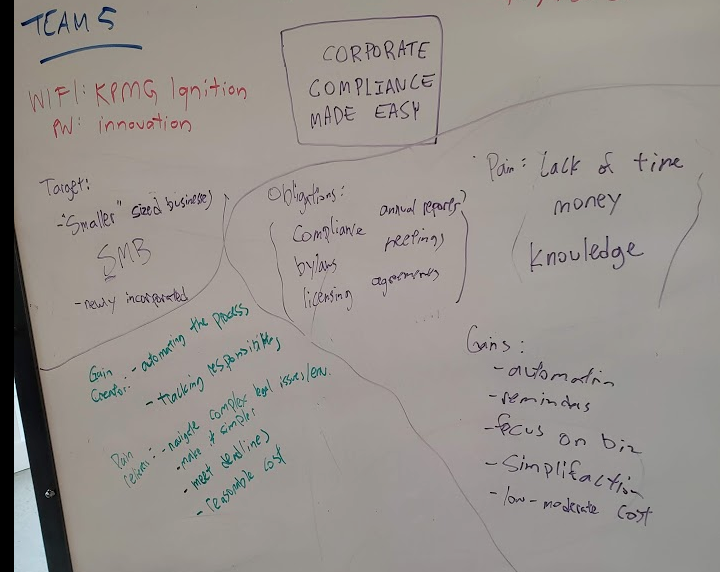 TEAM 5
WIFI: KPMG Ignition
PW: innovation
CORPORATE
COMPLIANCE
MADE EASY
Target:
- "Smaller" sized businesses
SMB
- newly incorporated
Obligations:
Compliance annual reports
bylaws meetings
licensing agreements
.....
Pain: Lack of time
money
knowledge
Gain
Creator: - automating the process
- tracking responsibilities
Pain
- navigate complex legal issues/env.
- make it simpler
- meet deadlines
- reasonable cost
Gains:
- automatin
- reminders
- focus on biz
- Simplifaction
- low-moderate cost